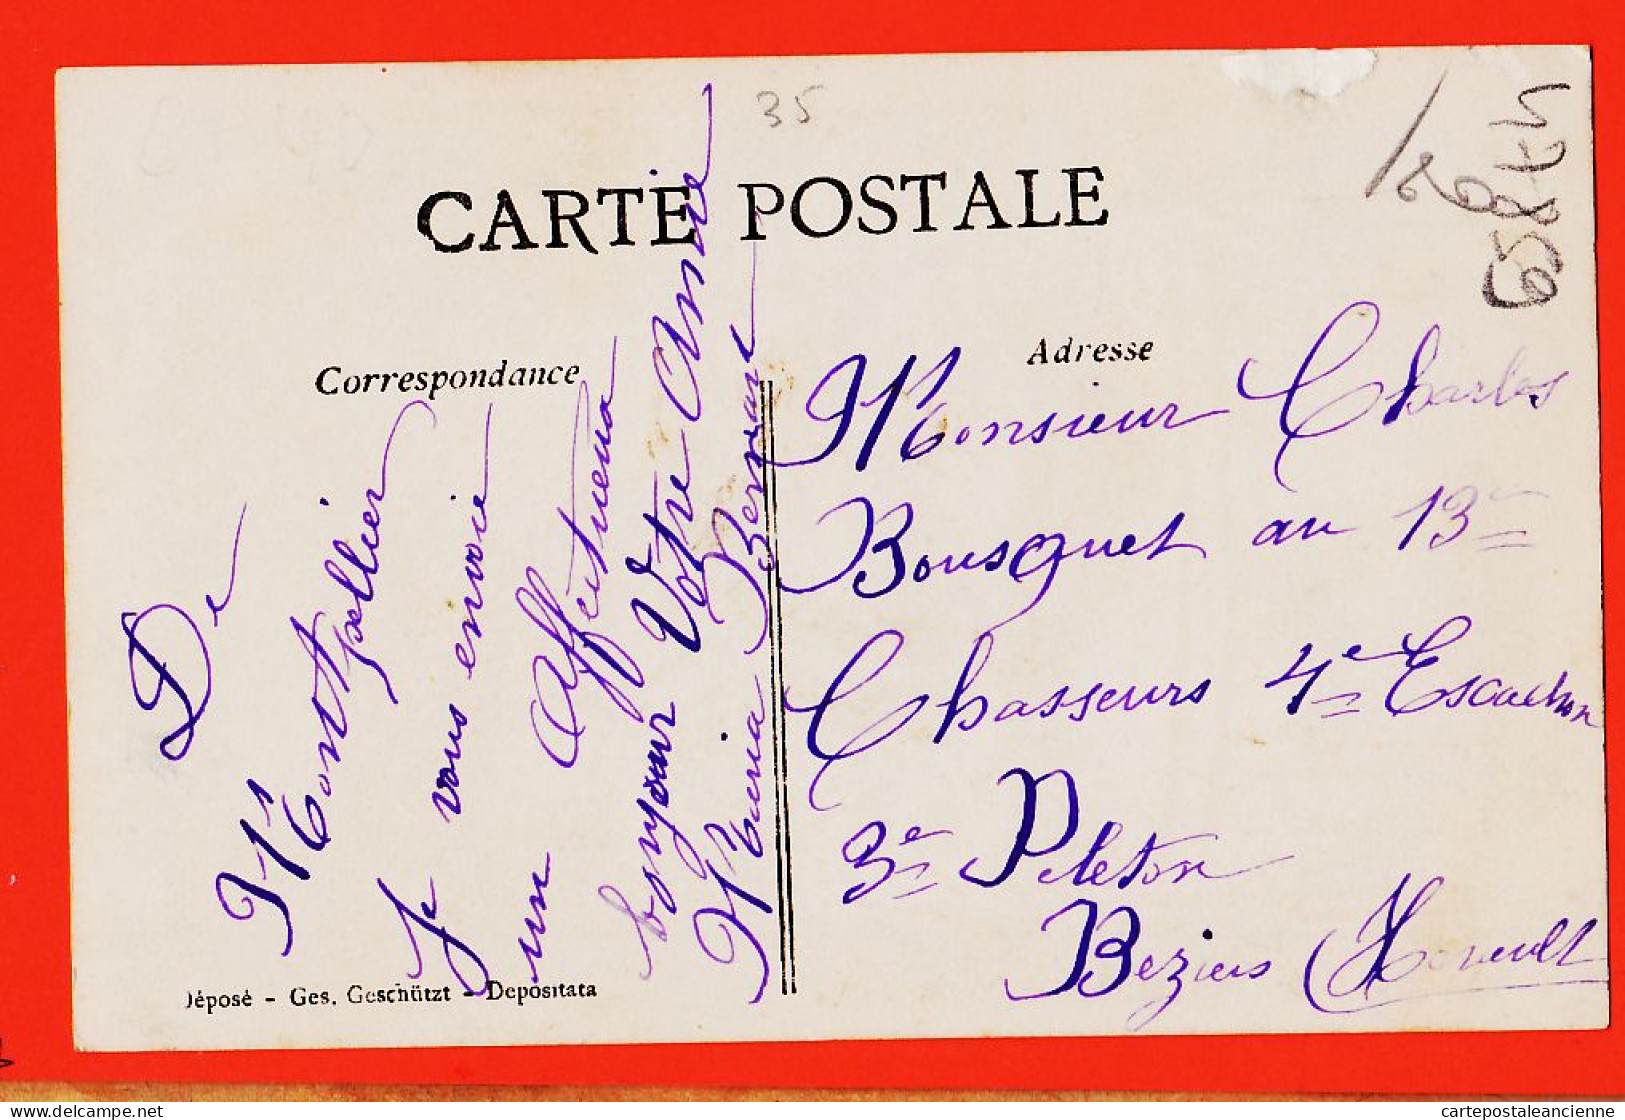 35
65874
CARTE POSTALE
Correspondance
Adresse
De
Montpellier
Je vous envoie
un Affectueux
bonjour Votre Amie
Maria Bernard
Monsieur Charles
Bousquet au 13e
Chasseurs 4e Escadron
3e Peleton
Beziers (Herault
Déposé - Ges. Geschützt - Depositata
delcampe.net
cartepostaleancienne